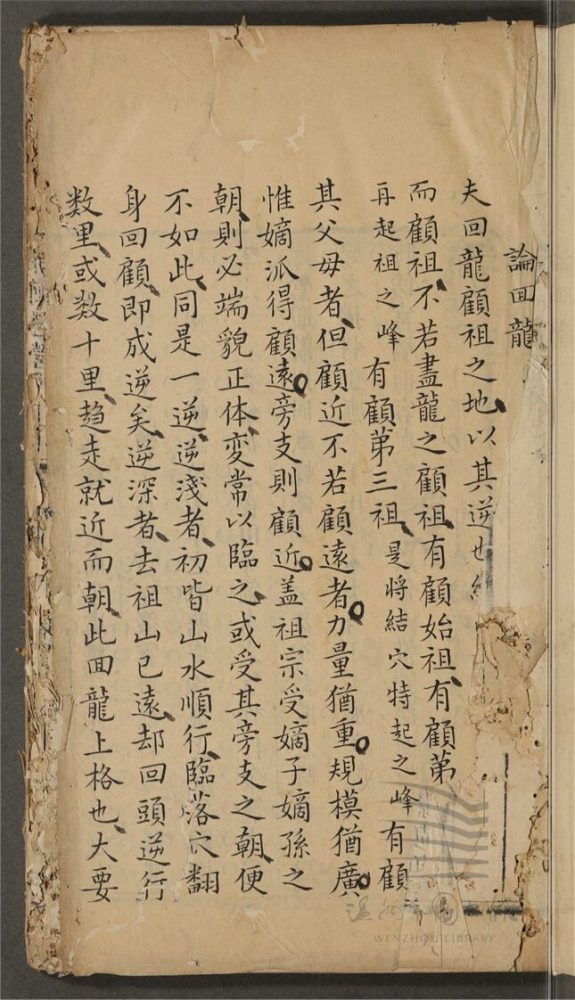 論回龍
夫回龍顧祖之地以其逆也
而顧祖不若盡龍之顧祖有顧始祖有顧第
再起祖之峰有顧第三祖是將結穴特起之峰有顧
其父母者但顧近不若顧遠者力量猶重規模猶廣
惟嫡派得顧遠旁支則顧近盖祖宗受嫡子嫡孫之
朝則必端貌正体変常以臨之或受其旁支之朝便
不如此同是一逆逆淺者初皆山水順行臨落穴翻
身回顧即成逆矣逆深者去祖山已遠却回頭逆行
数里或数十里趋走就近而朝此回龍上格也大要
WENZHOU LIBRARY